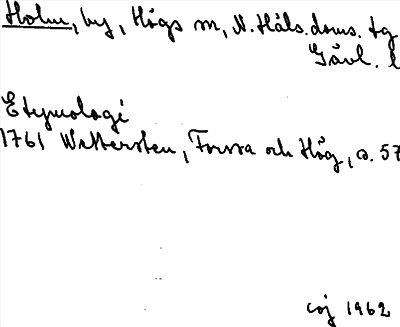 Holm, by, Högs sn, N. Häls. doms. tg
Gävl. l
Etymologi
1761 Wettersten, Forssa och Hög, s. 57
coj 1962